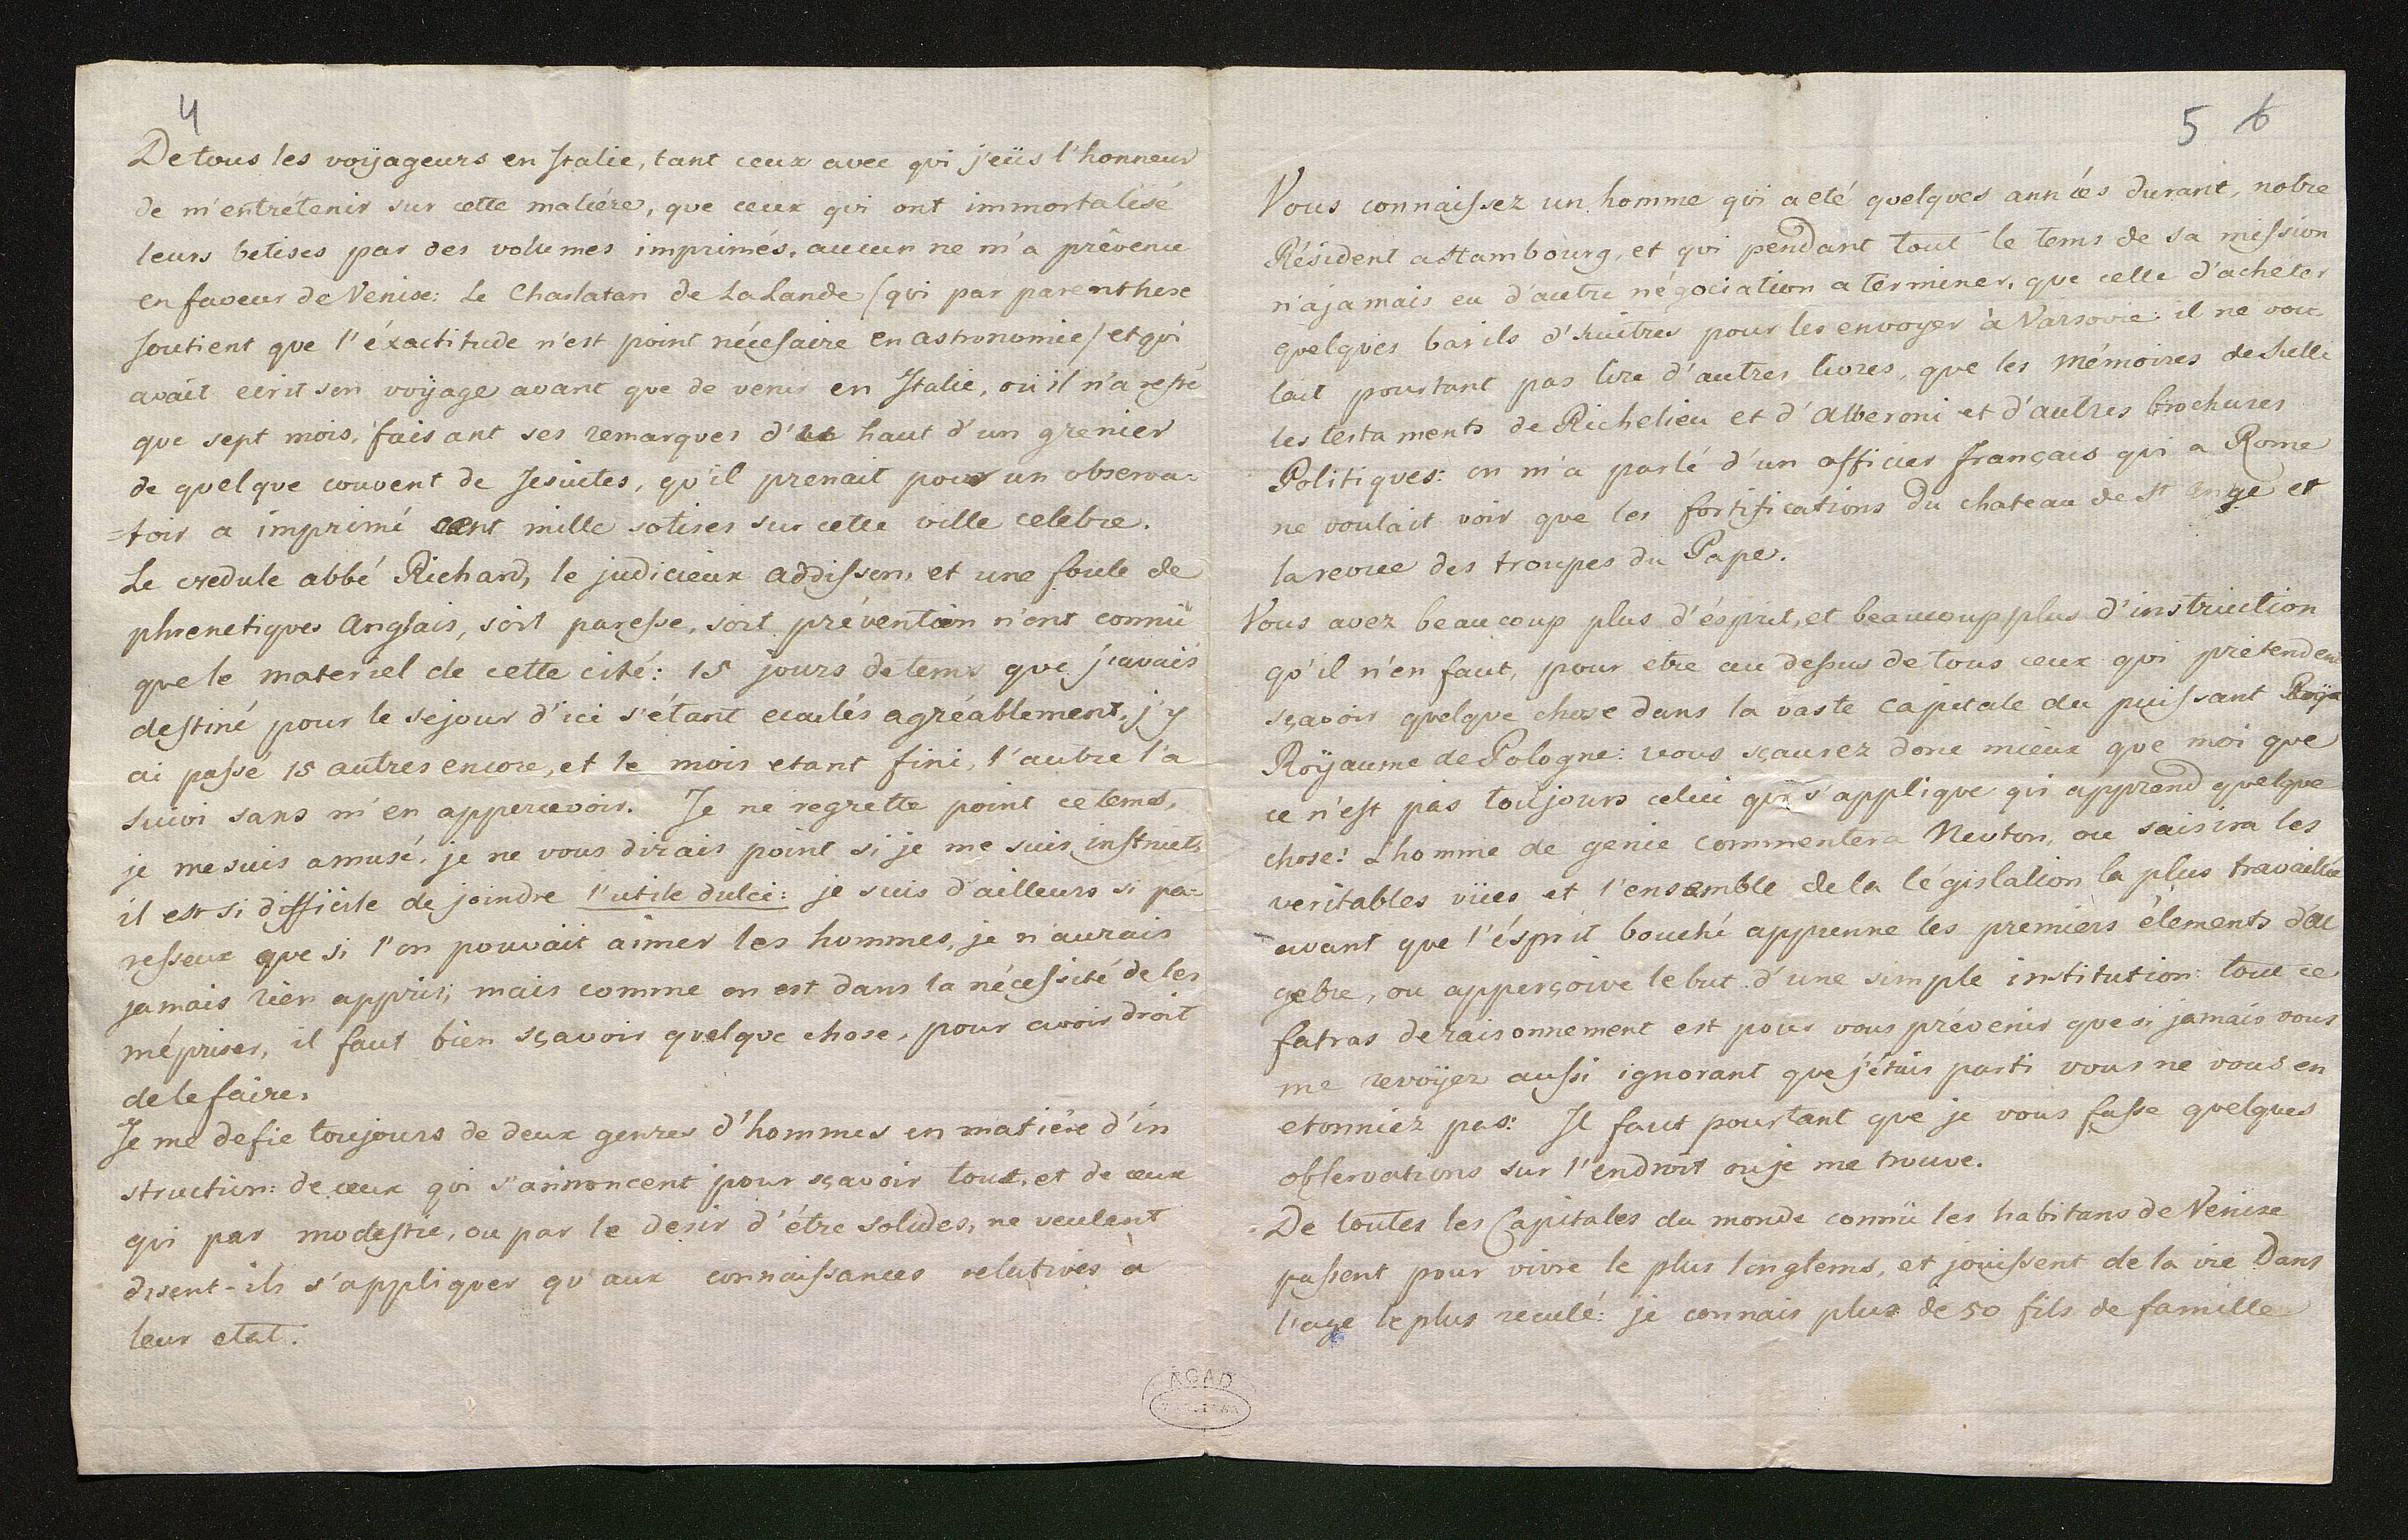 4
De tous les voÿageurs en Italie, tant ceux avec qui j'eüs l'honneur
de m'entrétenir sur cette matiére, que ceux qui ont immortalisé
leurs betises par des volumes imprimés, aucun ne m'a prêvenu
en faveur de Venise: Le Charlatan de La Lande (qui par parenthese
soutient que l'éxactitude n'est point nécessaire en astronomie) et qui
avait ecrit son voÿage avant que de venir en Italie, où il n'a resté
que sept mois, faisant ses remarques d' haut d'un grenier
de quelque couvent de Jesuites, qu'il prenait pour un observa=
=toir a imprimé cent mille sotises sur cette ville celebre.
Le credule abbé Richard, le judicieux Addisson, et une foule de
phrenetiques Anglais, soit paresse, soit prévention n'ont connü
que le materiel de cette cité: 15 jours de tems que j'avais
destiné pour le sejour d'ici s'étant ecoulés agréablement, j'y
ai passé 15 autres encore, et le mois etant fini, l'autre l'a
suivi sans m'en appercevoir. Je ne regrette point ce tems,
je me suis amusé, je ne vous dirais point si je me suis instruit,
il est si difficile de joindre l'utile dulci: je suis d'ailleurs si pa=
resseux que si l'on pouvait aimer les hommes, je n'aurais
jamais rien appris; mais comme on est dans la nécessité de les
mépriser, il faut bien sçavoir quelque chose, pour avoir droit
de le faire.
Je me defie toujours de deux genres d'hommes en matiére d'in
struction: de ceux qui s'annoncent pour sçavoir tout, et de ceux
qui par modestie, ou par le desir d'étre solides, ne veulent
disent-ils s'appliquer qu'aux connaissances relatives à
leur etat.
5 6
Vous connaissez un homme qui a eté quelques années durant, notre
Résident a Hambourg, et qui pendant tout le tems de sa mission
n'a jamais eu d'autre négociation a terminer, que celle d'acheter
quelques barils d'huitres pour les envoyer à Varsovie: il ne vou
lait pourtant pas lire d'autres livres, que les mémoires de Sulli
les testaments de Richelieu et d'Alberoni et d'autres brochures
Politiques: on m'a parlé d'un officier français qui a Rome
ne voulait voir que les fortifications du chateau de St Ange et
la revue des troupes du Pape.
Vous avez beaucoup plus d'ésprit, et beaucoup plus d'instruction
qu'il n'en faut, pour etre au dessus de tous ceux qui prétendent
sçavoir quelque chose dans la vaste capitale du puissant Roÿa
Roÿaume de Pologne: vous sçaurez donc mieux que moi que
ce n'est pas toujours celui qui s'applique qui apprend quelque
chose: L'homme de genie commentera Neuton, ou saisira les
veritables vües et l'ensemble de la législation la plus travaillée
avant que l'ésprit bouché apprenne les premièrs élements d'al
gebre, ou apperçoive le but d'une simple institution: tout ce
fatras de raisonnement est pour vous prévenir que si jamais vous
me revoÿez aussi ignorant que j'étais parti vous ne vous en
etonniez pas: Il faut pourtant que je vous fasse quelques
observations sur l'endroit où je me trouve.
De toutes les Capitales du monde connü les habitans de Venise
passent pour vivre le plus longtems, et jouissent de la vie Dans
l'age le plus reculé: je connais plus de 50 fils de famille
AGAD
WARSZAWA